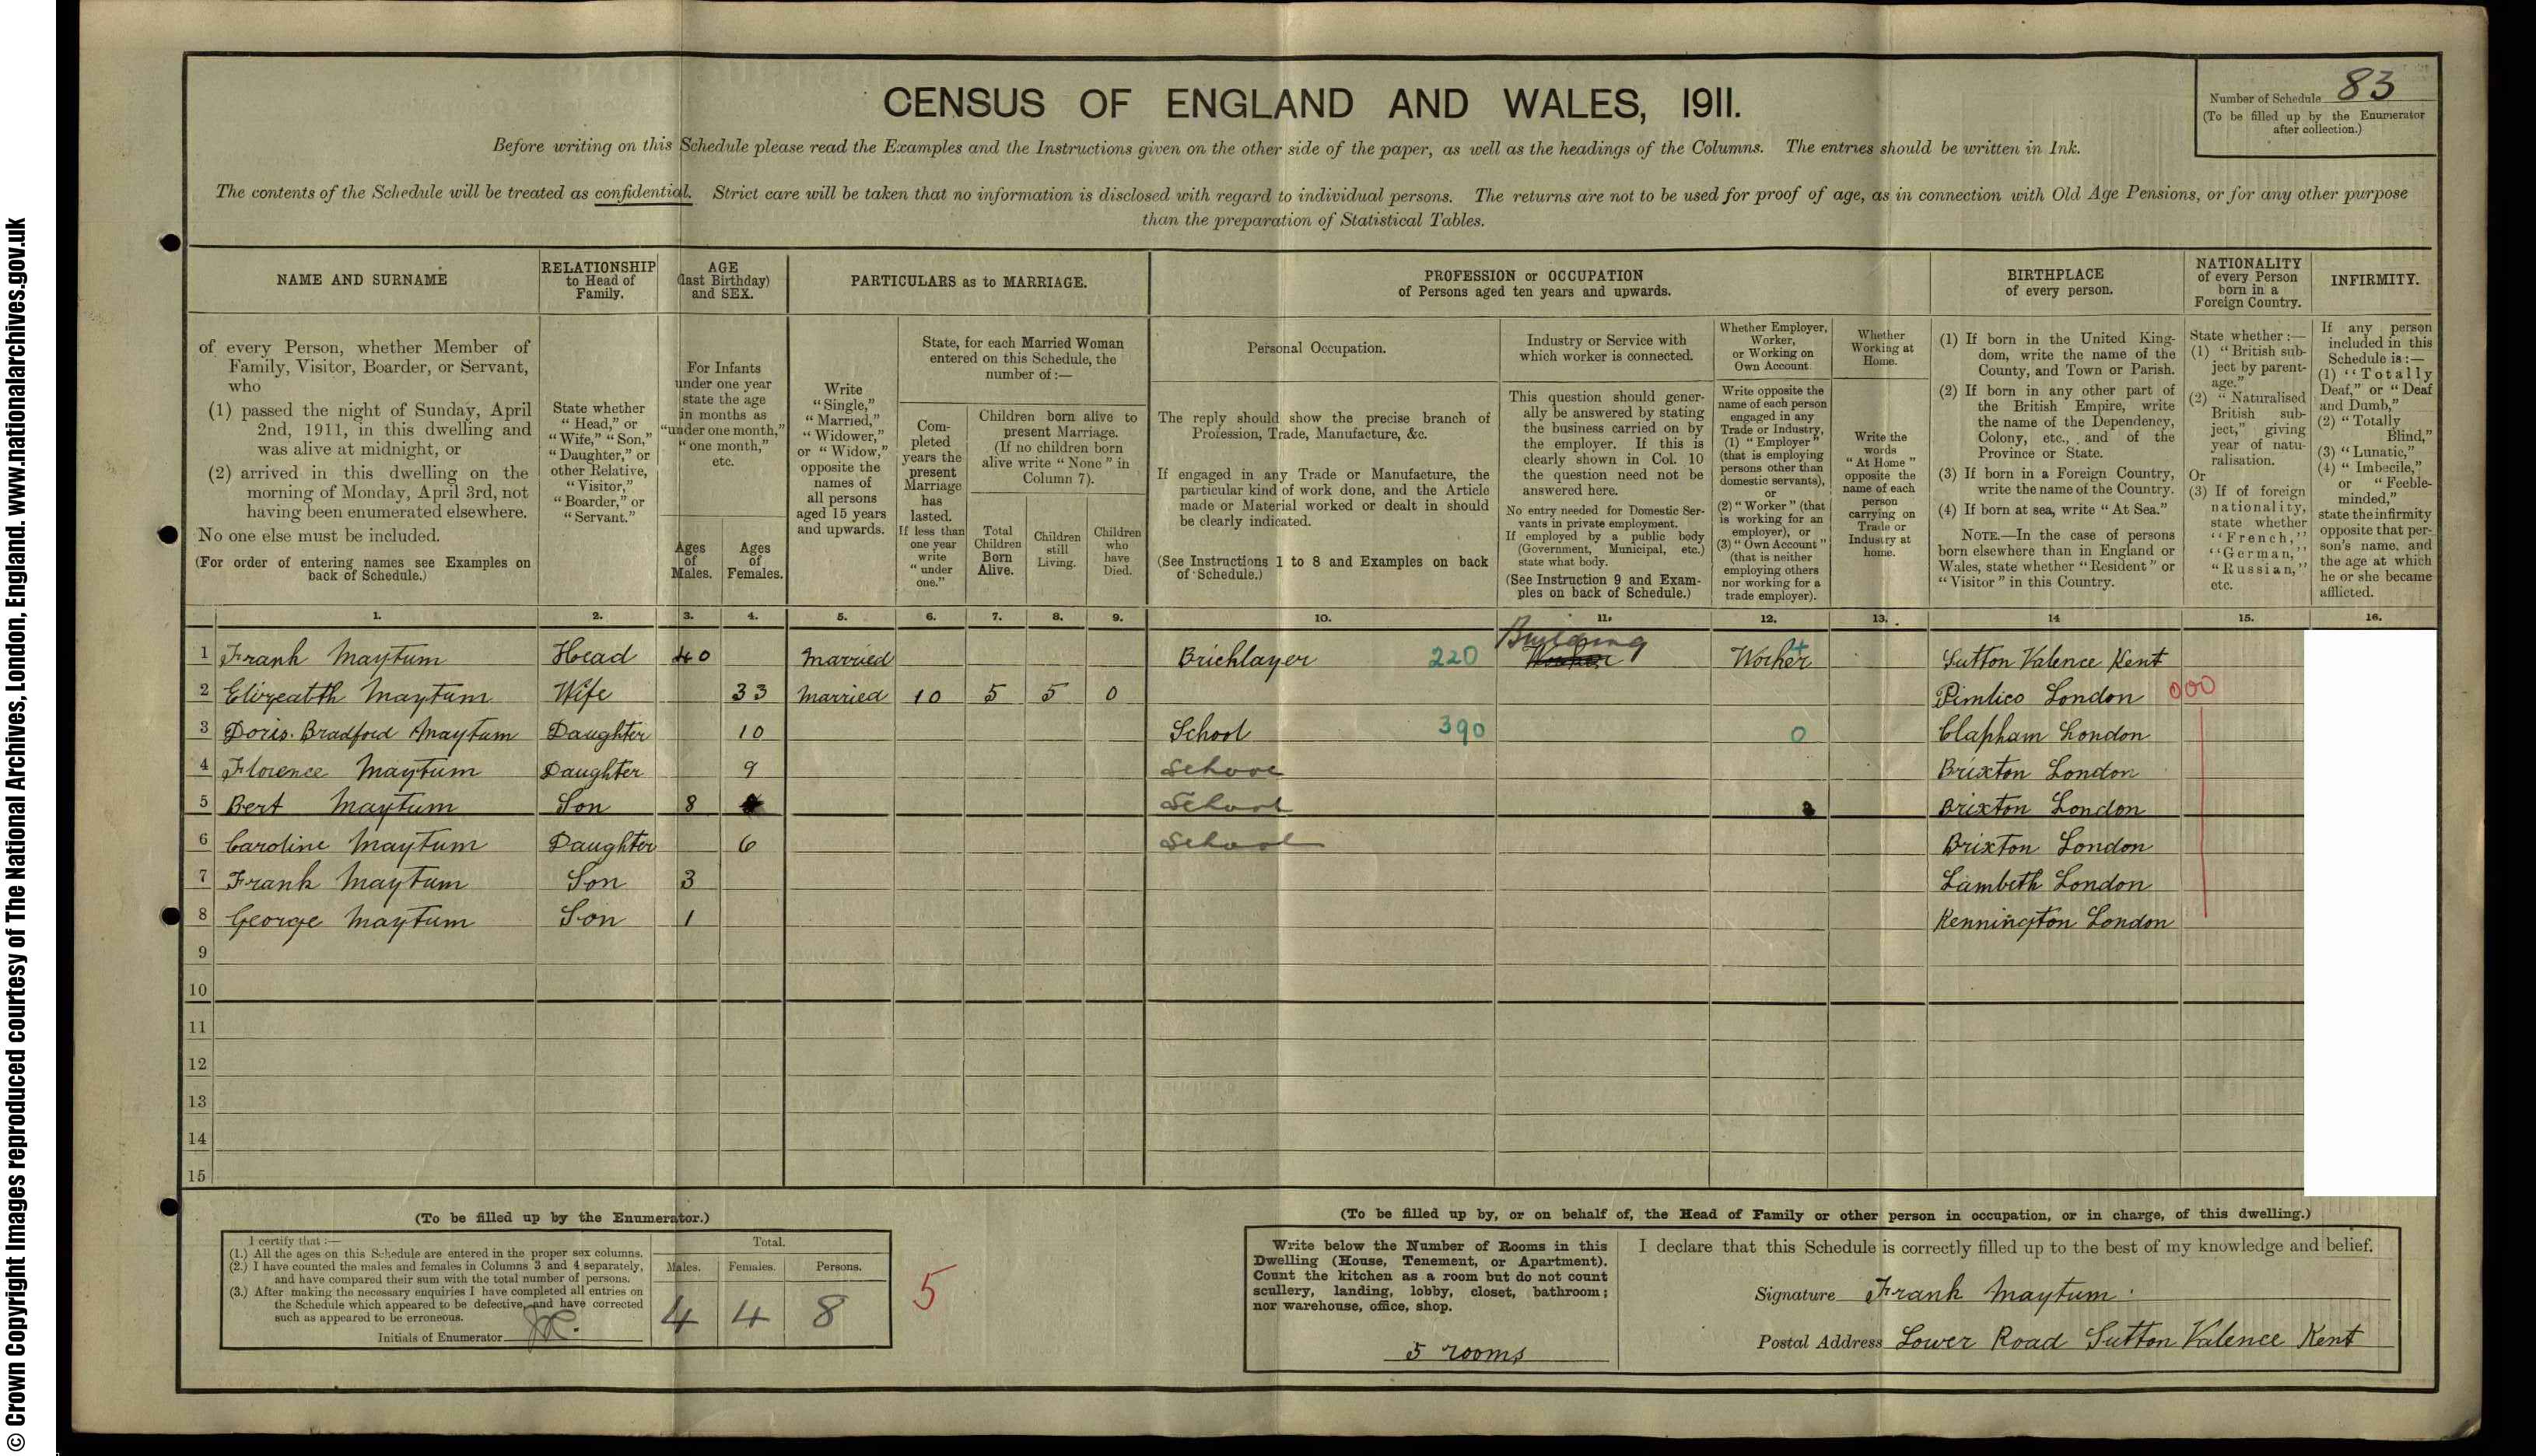 © Crown Copyright Images reproduced courtesy of The National Archives, London, England. www.nationalarchives.gov.uk
CENSUS OF ENGLAND AND WALES, 1911.
Number of Schedule 83
(To be filled up by the Enumerator
after collection.)
Before writing on this Schedule please read the Examples and the Instructions given on the other side of the paper, as well as the headings of the Columns. The entries should be written in Ink.
The contents of the Schedule will be treated as confidential. Strict care will be taken that no information is disclosed with regard to individual persons. The returns are not to be used for proof of age, as in connection with Old Age Pensions, or for any other purpose
than the preparation of Statistical Tables.
NAME AND SURNAME
of every Person, whether Member of
Family, Visitor, Boarder, or Servant,
who
(1) passed the night of Sunday, April
2nd, 1911, in this dwelling and
was alive at midnight, or
(2) arrived in this dwelling on the
morning of Monday, April 3rd, not
having been enumerated elsewhere.
No one else must be included.
(For order of entering names see Examples on
back of Schedule.)
RELATIONSHIP
to Head of
Family.
State whether
"Head," or
"Wife," "Son,"
"Daughter," or
other Relative,
"Visitor,"
"Boarder," or
"Servant."
AGE
(last Birthday)
and SEX.
For Infants
under one year
state the age
in months as
"under one month,"
"one month,"
etc.
Ages
of
Males.
Ages
of
Females.
PARTICULARS as to MARRIAGE.
Write
"Single,"
"Married,"
"Widower,"
or "Widow,"
opposite the
names of
all persons
aged 15 years
and upwards.
State, for each Married Woman
entered on this Schedule, the
number of:—
Com-
pleted
years the
present
Marriage
has
lasted.
If less than
one year
write
"under
one."
Children born alive to
present Marriage.
(If no children born
alive write "None" in
Column 7).
Total
Children
Born
Alive.
Children
still
Living.
Children
who
have
Died.
PROFESSION or OCCUPATION
of Persons aged ten years and upwards.
Personal Occupation.
The reply should show the precise branch of
Profession, Trade, Manufacture, &c.
If engaged in any Trade or Manufacture, the
particular kind of work done, and the Article
made or Material worked or dealt in should
be clearly indicated.
(See Instructions 1 to 8 and Examples on back
of Schedule.)
Industry or Service with
which worker is connected.
This question should gener-
ally be answered by stating
the business carried on by
the employer. If this is
clearly shown in Col. 10
the question need not be
answered here.
No entry needed for Domestic Ser-
vants in private employment.
If employed by a public body
(Government, Municipal, etc.)
state what body.
(See Instruction 9 and Exam-
ples on back of Schedule.)
Whether Employer,
Worker,
or Working on
Own Account.
Write opposite the
name of each person
engaged in any
Trade or Industry,
(1) "Employer"
(that is employing
persons other than
domestic servants),
or
(2) "Worker" (that
is working for an
employer), or
(3) "Own Account"
(that is neither
employing others
nor working for a
trade employer).
Whether
Working at
Home.
Write the
words
"At Home"
opposite the
name of each
person
carrying on
Trade or
Industry at
home.
BIRTHPLACE
of every person.
(1) If born in the United King-
dom, write the name of the
County, and Town or Parish.
(2) If born in any other part of
the British Empire, write
the name of the Dependency,
Colony, etc., and of the
Province or State.
(3) If born in a Foreign Country,
write the name of the Country.
(4) If born at sea, write "At Sea."
NOTE.—In the case of persons
born elsewhere than in England or
Wales, state whether "Resident" or
"Visitor" in this Country.
NATIONALITY
of every Person
born in a
Foreign Country.
State whether:—
(1) "British sub-
ject by parent-
age."
(2) "Naturalised
British sub-
ject," giving
year of natu-
ralisation.
Or
(3) If of foreign
nationality,
state whether
"French,"
"German,"
"Russian,"
etc.
INFIRMITY.
If any person
included in this
Schedule is:—
(1) "Totally
Deaf," or "Deaf
and Dumb,"
(2) "Totally
Blind,"
(3) "Lunatic,"
(4) "Imbecile,"
or "Feeble-
minded,"
state the infirmity
opposite that per-
son's name, and
the age at which
he or she became
afflicted.
1. 2. 3. 4. 5. 6. 7. 8. 9. 10. 11. 12. 13. 14 15. 16.
Building
1 Frank Maytum Head 40 Married Bricklayer 220 Worker Worker 4 Sutton Valence Kent
2 Elizeabth Maytum Wife 33 Married 10 5 5 0 Pimlico London 000
3 Doris. Bradford Maytum Daughter 10 School 390 0 Clapham London
4 Florence Maytum Daughter 9 School Brixton London
5 Bert Maytum Son 8 School Brixton London
6 Caroline Maytum Daughter 6 School Brixton London
7 Frank Maytum Son 3 Lambeth London
8 George Maytum Son 1 Kennington London
9
10
11
12
13
14
15
(To be filled up by the Enumerator.)
I certify that:—
(1.) All the ages on this Schedule are entered in the proper sex columns.
(2.) I have counted the males and females in Columns 3 and 4 separately,
and have compared their sum with the total number of persons.
(3.) After making the necessary enquiries I have completed all entries on
the Schedule which appeared to be defective, and have corrected
such as appeared to be erroneous.
Initials of Enumerator
Total.
Males. Females. Persons.
4 4 8
5
(To be filled up by, or on behalf of, the Head of Family or other person in occupation, or in charge, of this dwelling.)
Write below the Number of Rooms in this
Dwelling (House, Tenement, or Apartment).
Count the kitchen as a room but do not count
scullery, landing, lobby, closet, bathroom;
nor warehouse, office, shop.
5 rooms
I declare that this Schedule is correctly filled up to the best of my knowledge and belief.
Signature Frank Maytum.
Postal Address Lower Road Sutton Valence Kent